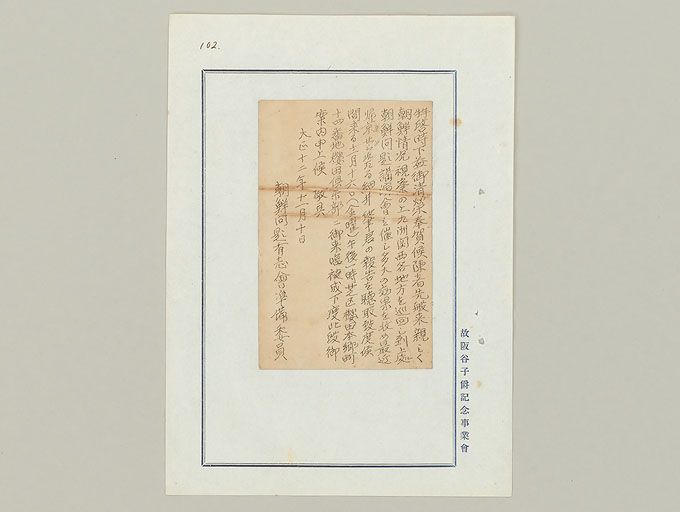 102.
拝啓時下益御清栄奉賀候陳者先般来親しく
朝鮮情況視察の上九洲関西各地方を巡回し到る処
朝鮮問題講演会を催し多大の効果を収め最近
帰京せられたる細井肇君の報告を聴取致度候
間来る十一月十六日(金曜)午後一時芝区桜田本郷町
十四番地桜田倶楽部ニ御来臨被成下度此段御
案内申上候 敬具
大正十二年十一月十日
朝鮮問題有志会準備委員
故阪谷子爵記念事業會